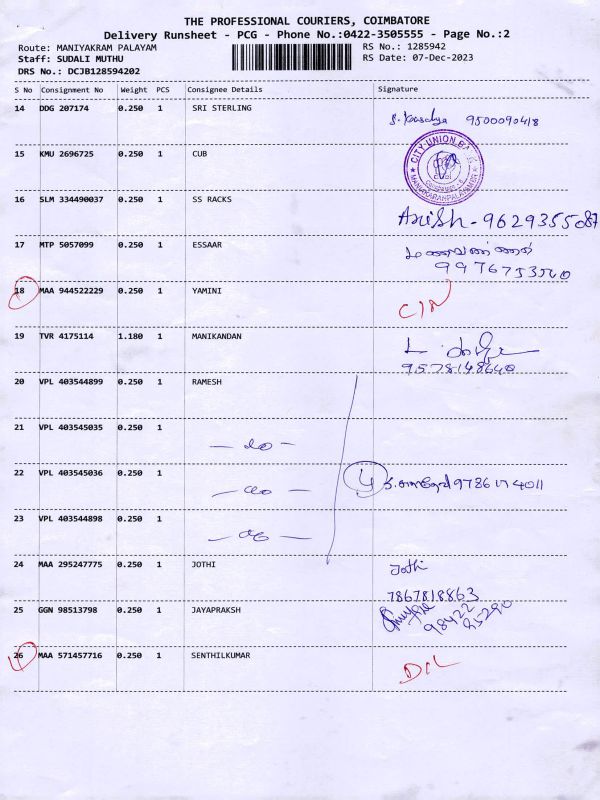 THE PROFESSIONAL COURIERS, COIMBATORE
Delivery Runsheet - PCG - Phone No.:0422-3505555 - Page No.:2
Route: MANIYAKRAM PALAYAM RS No.: 1285942
Staff: SUDALI MUTHU RS Date: 07-Dec-2023
DRS No.: DCJB128594202
S No Consignment No Weight PCS Consignee Details Signature
14 DDG 207174 0.250 1 SRI STERLING
9500090418
15 KMU 2696725 0.250 1 CUB
CITY UNION
16 SLM 334490037 0.250 1 SS RACKS
Anish - 9629355087
17 MTP 5057099 0.250 1 ESSAAR
9976753540
18 MAA 944522229 0.250 1 YAMINI
19 TVR 4175114 1.180 1 MANIKANDAN
9578148640
20 VPL 403544899 0.250 1 RAMESH
21 VPL 403545035 0.250 1
22 VPL 403545036 0.250 1
23 VPL 403544898 0.250 1
24 MAA 295247775 0.250 1 JOTHI
Jothi
7867818863
25 GGN 98513798 0.250 1 JAYAPRAKSH
98422
25290
26 MAA 571457716 0.250 1 SENTHILKUMAR